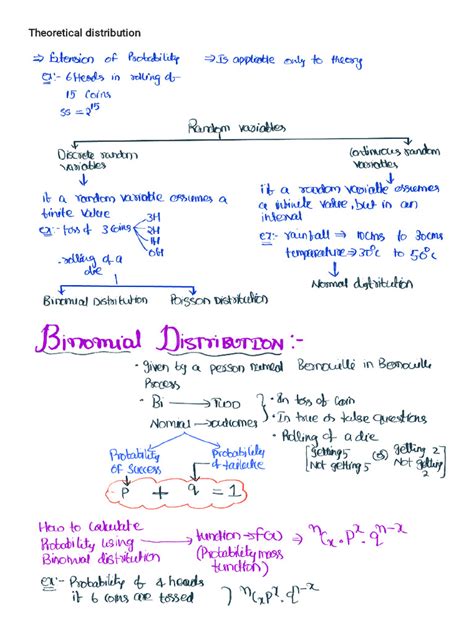 Theoretical distribution
⇒ Extension of Probability ⇒ Is applicable only to theory
ex:- 6 Heads in rolling of
15 coins
SS = 2^15
Random variables
Discrete random variables
Continuous random variables
if a random variable assumes a finite value
ex:- toss of 3 coins
3H
2H
1H
0H
- rolling of a die
if a random variable assumes a infinite value, but in an interval
ex:- rainfall ⇒ 10cms to 30cms
temperature ⇒ 30°C to 50°C
Binomial Distribution
Poisson Distribution
Normal distribution
BINOMIAL DISTRIBUTION :-
• Given by a person named Bernouille in Bernouille
Process
• Bi → Two
Nominal → outcomes
• In toss of coin
• In true or false questions
• Rolling of a die
[getting 5 (or) getting 2
Not getting 5 Not getting 2]
Probability of success
Probability of failure
p + q = 1
How to calculate
Probability using
Binomial distribution
function → f(x) ⇒ ⁿCx · p^x · q^n-x
(Probability mass function)
ex:- Probability of 4 heads
if 6 coins are tossed
} ⁿCx p^x · q^n-x